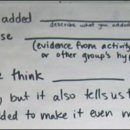 added ____
describe what you added
se ____
(evidence from activity
or other group's hy
e think ____
, but it also tells us t
ded to make it even m